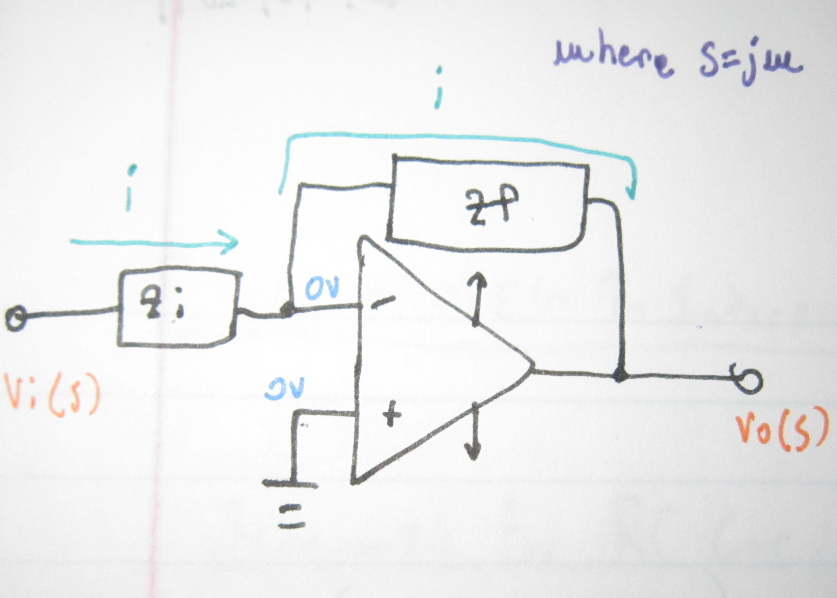 where s=jω
i
i
zf
zi
0V
-
0V
+
Vi(s)
Vo(s)